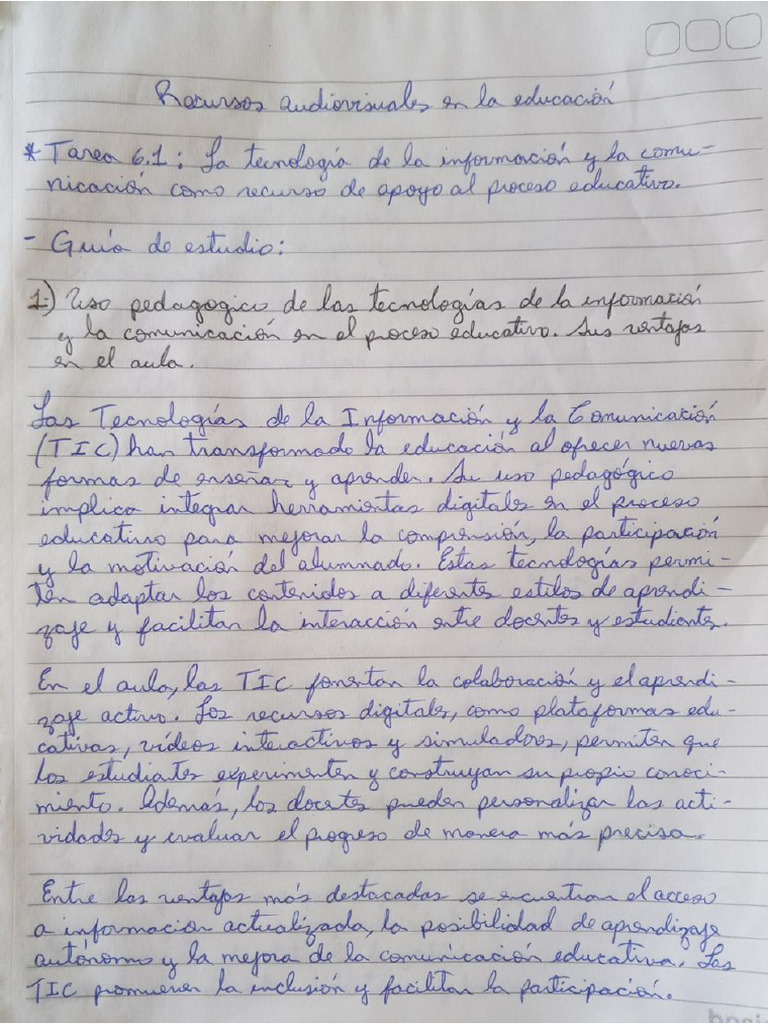 Recursos audiovisuales en la educación
* Tarea 6.1: La tecnología de la información y la comu-
nicación como recurso de apoyo al proceso educativo.
- Guía de estudio:
1.) Uso pedagogico de las tecnologías de la información
y la comunicación en el proceso educativo. Sus ventajas
en el aula.
Las Tecnologías de la Información y la Comunicación
(TIC) han transformado la educación al ofrecer nuevas
formas de enseñar y aprender. Su uso pedagógico
implica integrar herramientas digitales en el proceso
educativo para mejorar la comprensión, la participación
y la motivación del alumnado. Estas tecnologías permi-
ten adaptar los contenidos a diferentes estilos de aprendi-
zaje y facilitan la interacción entre docentes y estudiantes.
En el aula, las TIC fomentan la colaboración y el aprendi-
zaje activo. Los recursos digitales, como plataformas edu-
cativas, vídeos interactivos y simuladores, permiten que
los estudiantes experimenten y construyan su propio conoci-
miento. Además, los docentes pueden personalizar las acti-
vidades y evaluar el progreso de manera más precisa.
Entre las ventajas más destacadas se encuentran el acceso
a información actualizada, la posibilidad de aprendizaje
autónomo y la mejora de la comunicación educativa. Las
TIC promueven la inclusión y facilitan la participación.